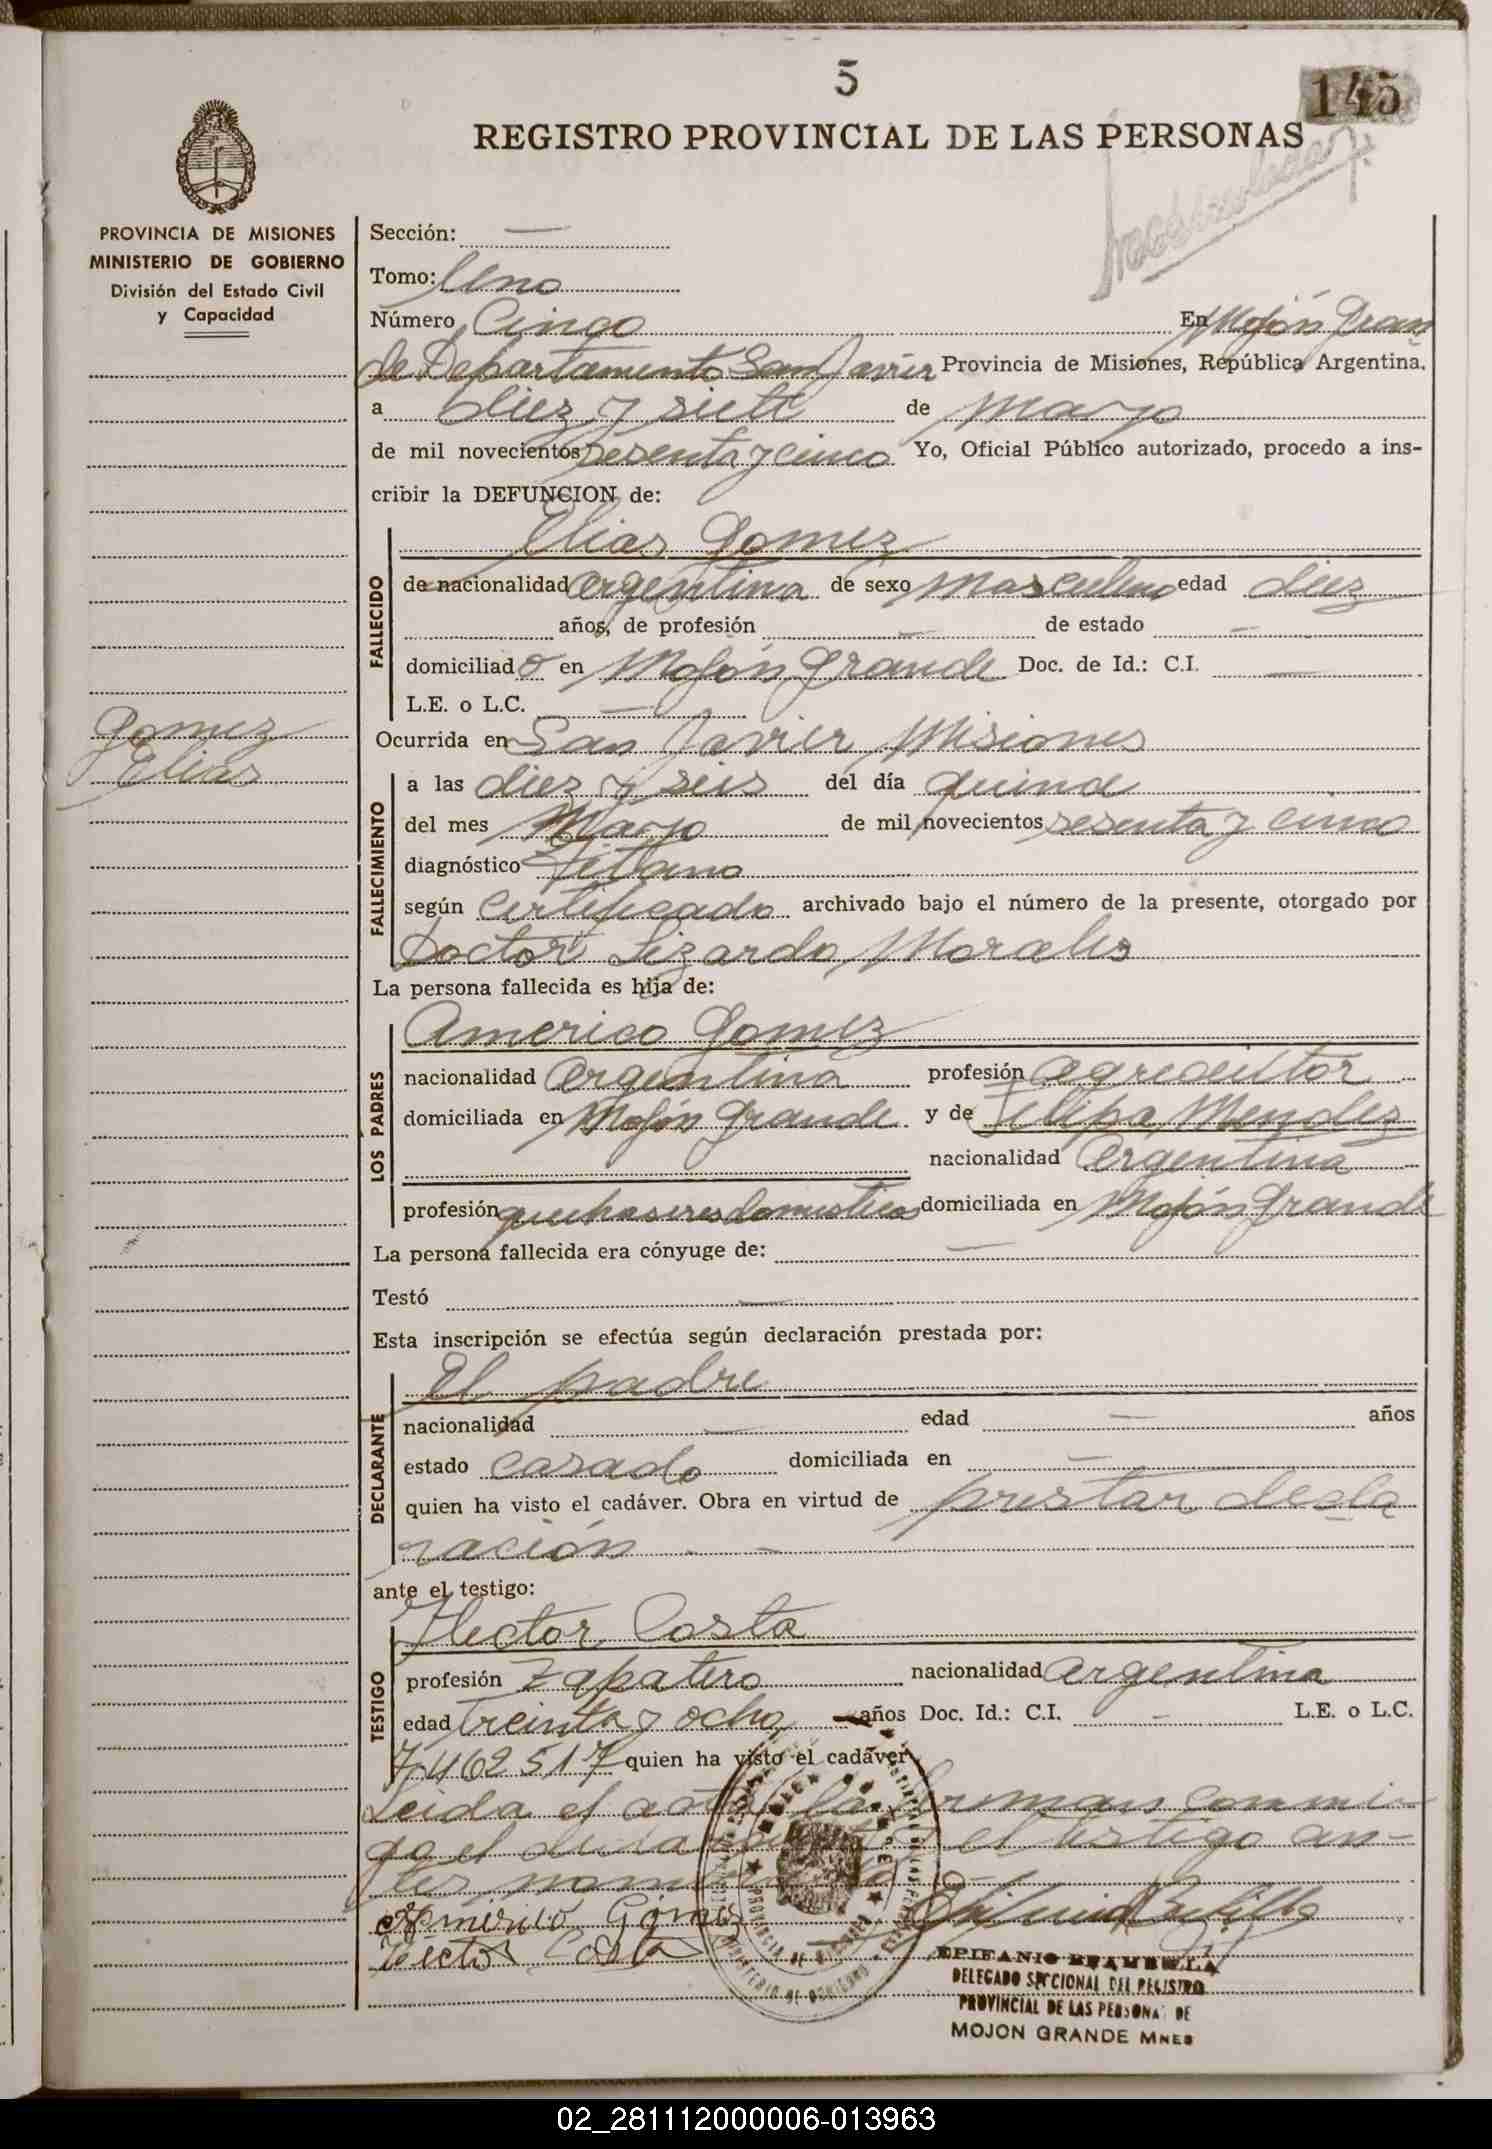 5
145
REGISTRO PROVINCIAL DE LAS PERSONAS
PROVINCIA DE MISIONES
MINISTERIO DE GOBIERNO
División del Estado Civil
y Capacidad
Sección: —
Tomo: Uno
Número Cinco En Mojón Gran
de Departamento San Javier Provincia de Misiones, República Argentina.
a diez y siete de Mayo
de mil novecientos sesenta y cinco Yo, Oficial Público autorizado, procedo a ins-
cribir la DEFUNCION de:
Elias Gomez
FALLECIDO
de nacionalidad argentina de sexo masculino edad diez
años, de profesión — de estado —
domiciliado en Mojón Grande Doc. de Id.: C.I. —
L.E. o L.C. —
Gomez
Elias
Ocurrida en San Javier Misiones
FALLECIMIENTO
a las diez y seis del día quince
del mes Mayo de mil novecientos sesenta y cinco
diagnóstico Tétano
según certificado archivado bajo el número de la presente, otorgado por
Doctor Lizardo Morales
La persona fallecida es hija de:
LOS PADRES
Americo Gomez
nacionalidad argentina profesión agricultor
domiciliada en Mojón Grande. y de Felipa Mendez
nacionalidad argentina
profesión quehaseres domesticos domiciliada en Mojón Grande
La persona fallecida era cónyuge de: —
Testó —
Esta inscripción se efectúa según declaración prestada por:
DECLARANTE
El padre
nacionalidad — edad — años
estado casado domiciliada en —
quien ha visto el cadáver. Obra en virtud de prestar decla
ración - -
ante el testigo:
TESTIGO
Hector Costa
profesión Zapatero nacionalidad argentina
edad treinta y ocho años Doc. Id.: C.I. — L.E. o L.C.
7.462517 quien ha visto el cadáver
Leida el acta la firman conmi-
go el declarante y el testigo an-
tes
Américo Gómez
Hector Costa
EPIFANIO BRAMBILLA
DELEGADO SECCIONAL DEL REGISTRO
PROVINCIAL DE LAS PERSONAS DE
MOJON GRANDE MNES
02_281112000006-013963